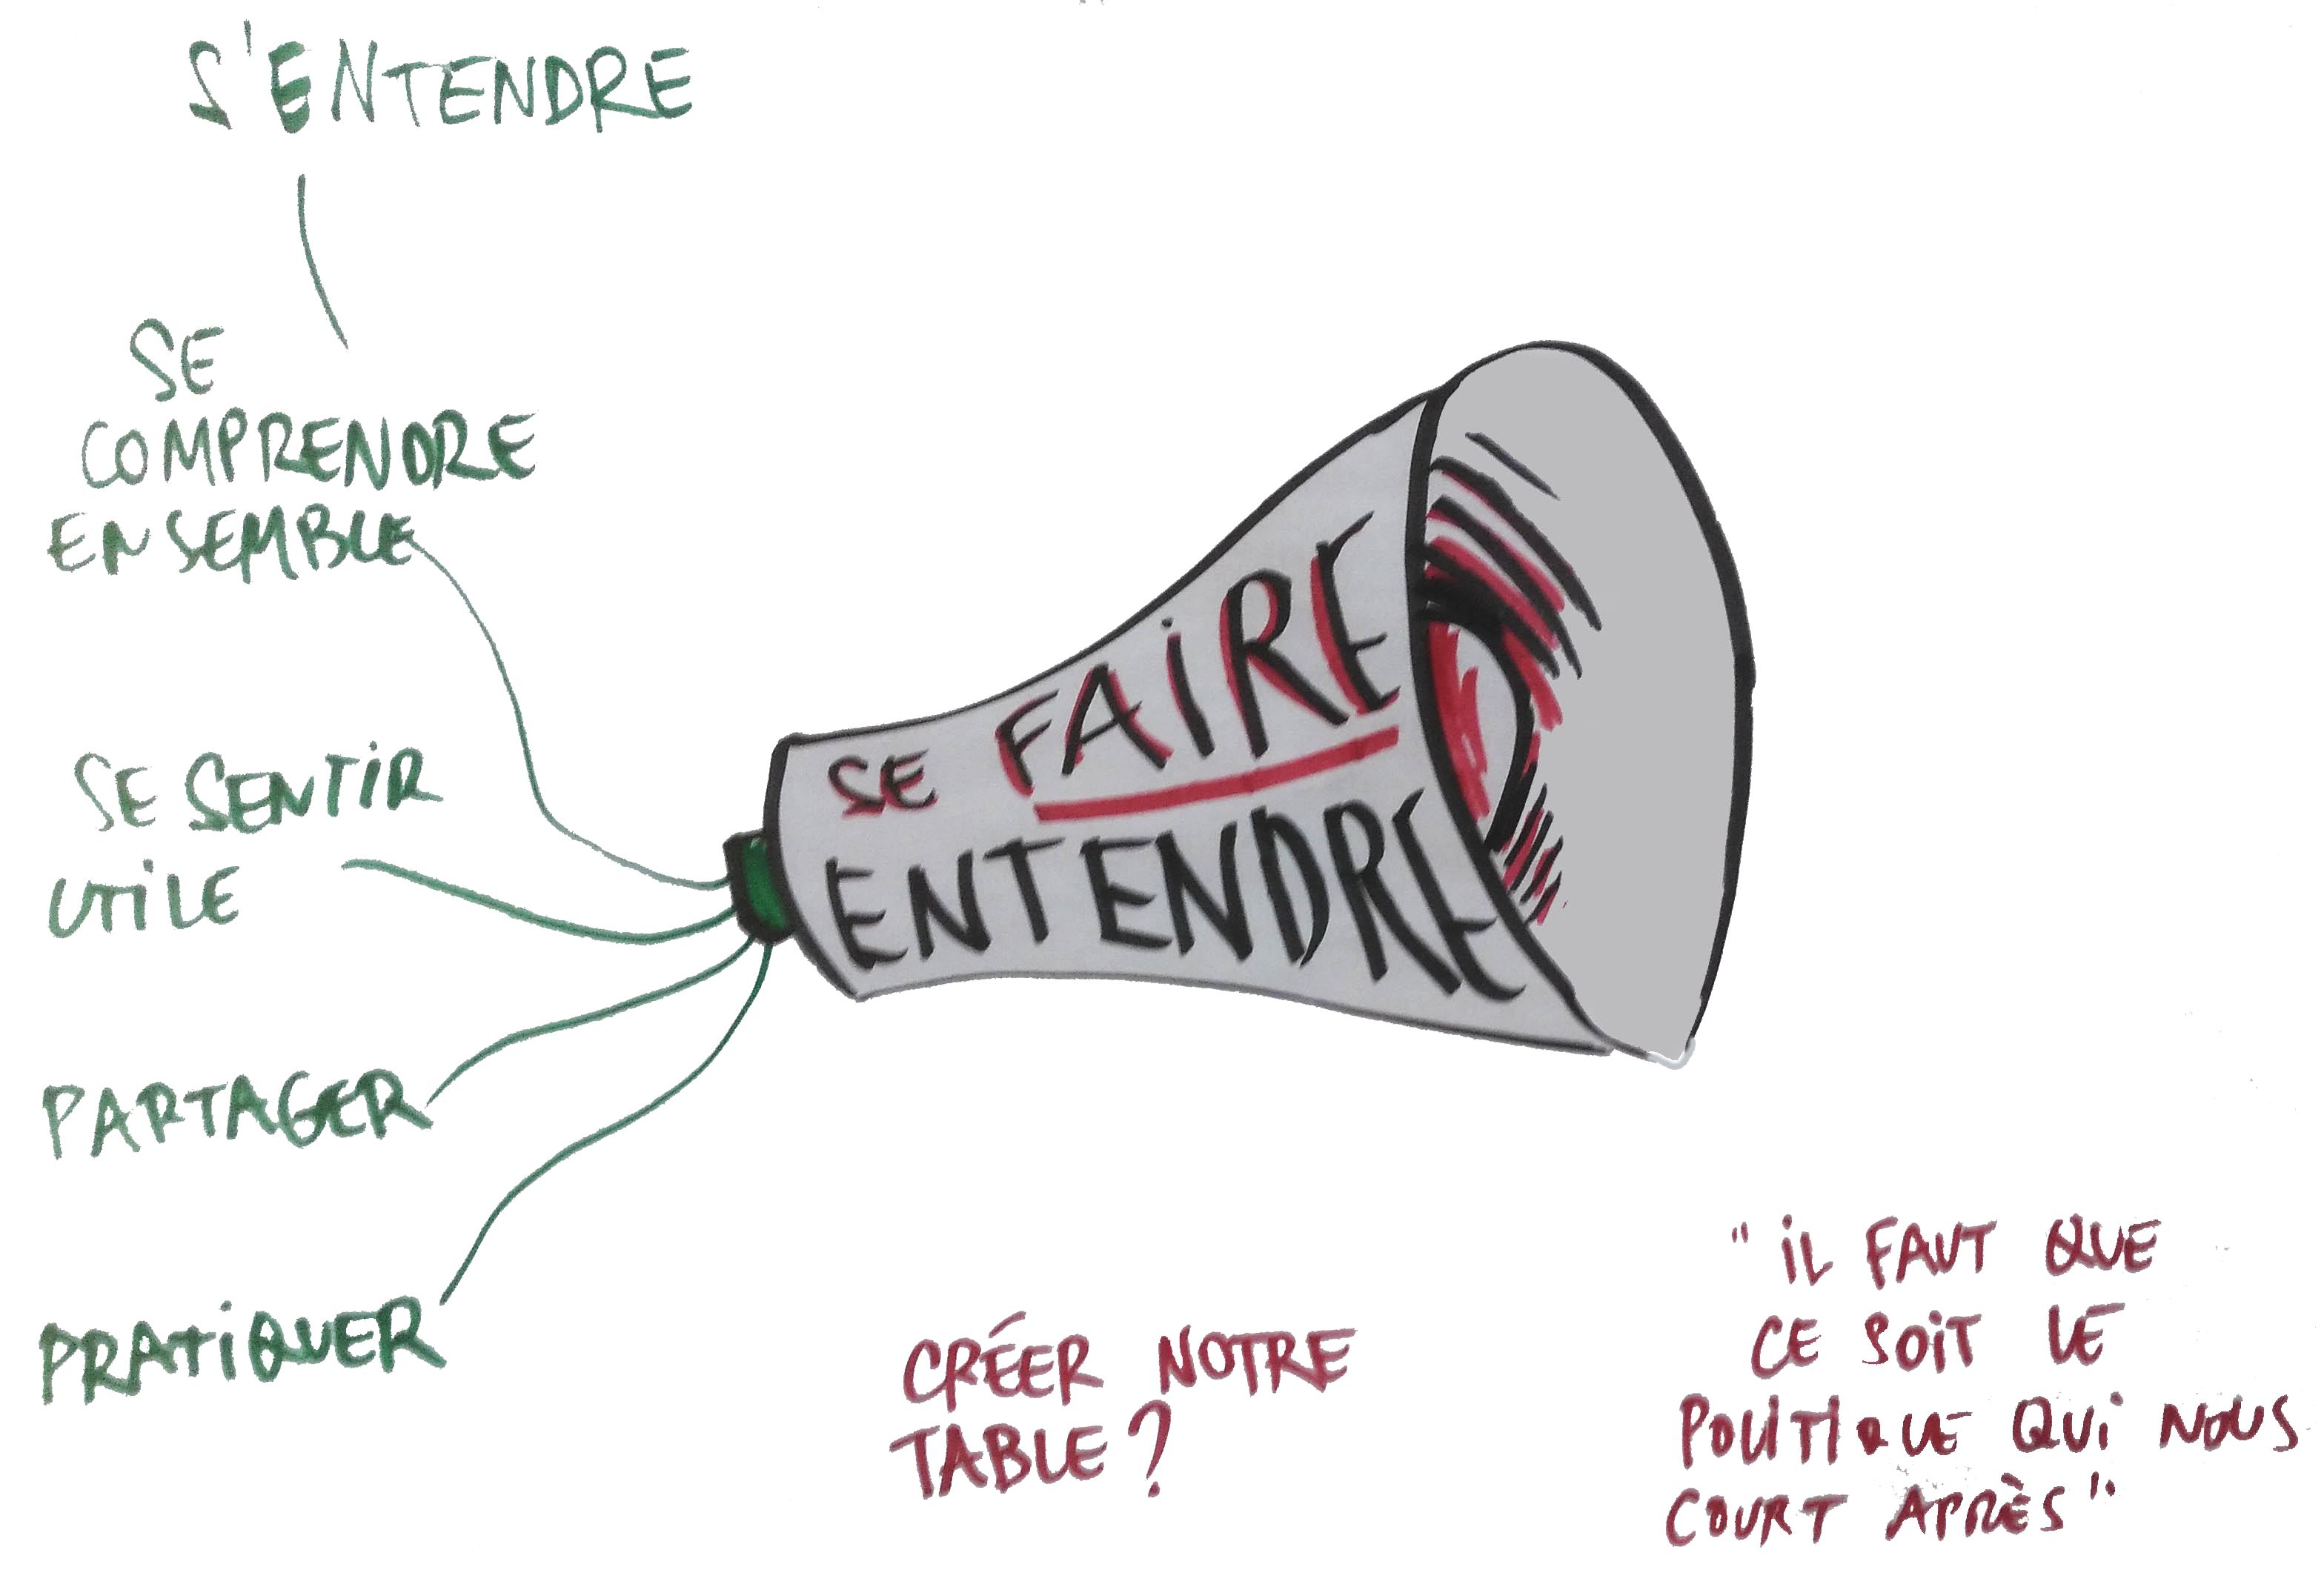 S'ENTENDRE
SE
COMPRENDRE
ENSEMBLE
SE SENTIR
UTILE
PARTAGER
PRATIQUER
SE FAIRE
ENTENDRE
CRÉER NOTRE
TABLE ?
"IL FAUT QUE
CE SOIT LE
POLITIQUE QUI NOUS
COURT APRÈS"